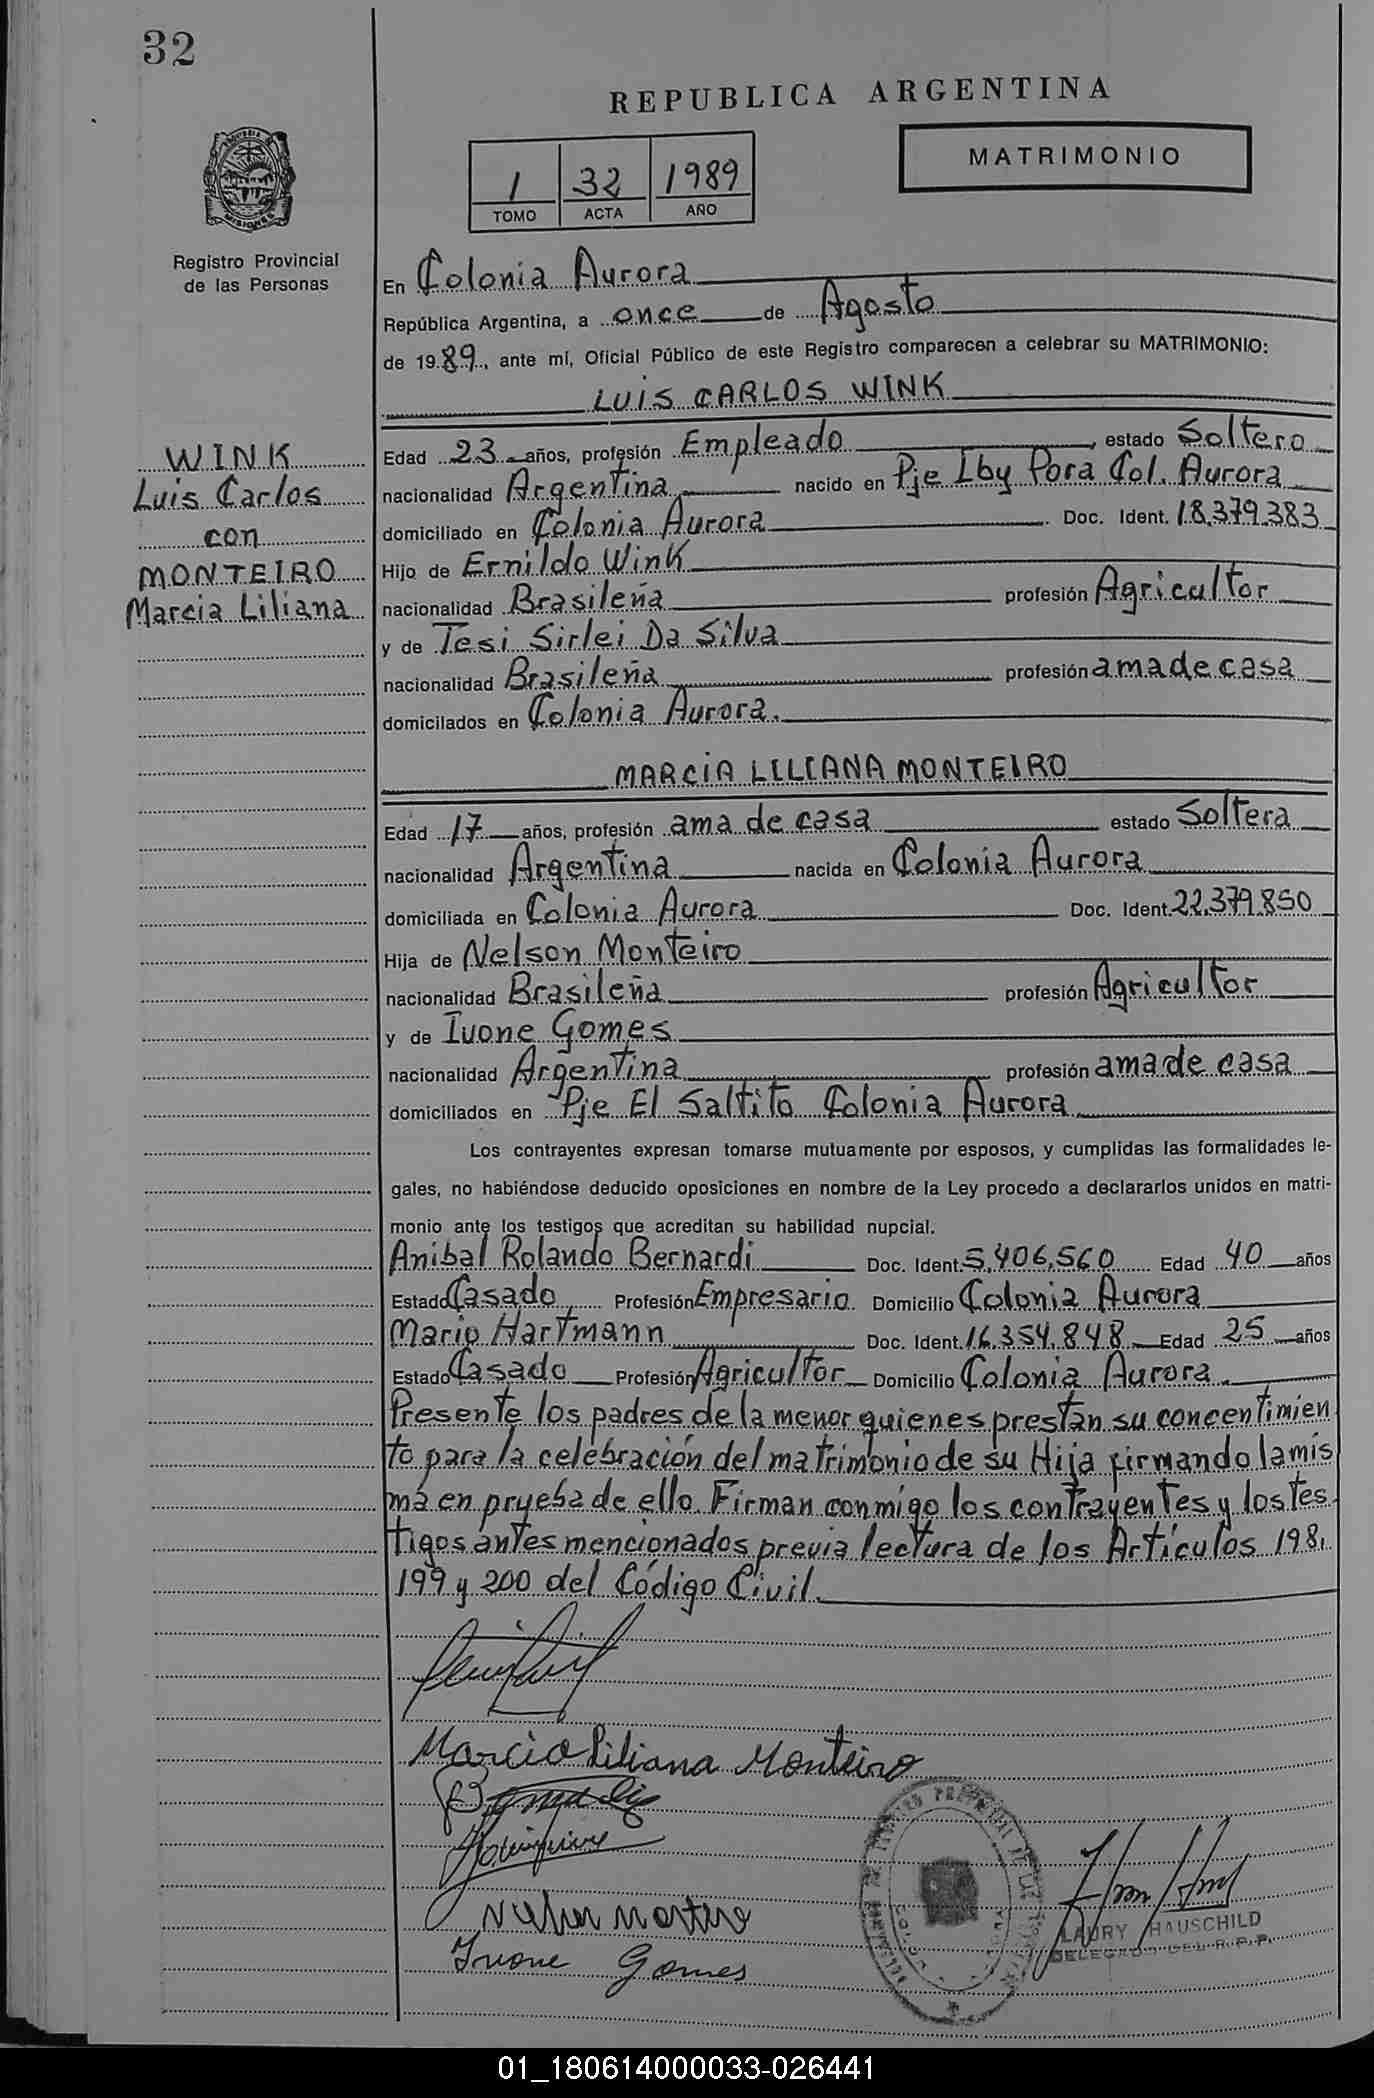 32
REPUBLICA ARGENTINA
MATRIMONIO
1 32 1989
TOMO ACTA AÑO
MISIONES
Registro Provincial
de las Personas
En Colonia Aurora
República Argentina, a once de Agosto
de 1989, ante mí, Oficial Público de este Registro comparecen a celebrar su MATRIMONIO:
LUIS CARLOS WINK
WINK
Luis Carlos
con
MONTEIRO
Marcia Liliana
Edad 23 años, profesión Empleado, estado Soltero
nacionalidad Argentina nacido en Pje Iby Pora Col. Aurora
domiciliado en Colonia Aurora. Doc. Ident. 18.379.383
Hijo de Ernildo Wink
nacionalidad Brasileña profesión Agricultor
y de Tesi Sirlei Da Silva
nacionalidad Brasileña profesión ama de casa
domicilados en Colonia Aurora.
MARCIA LILIANA MONTEIRO
Edad 17 años, profesión ama de casa estado Soltera
nacionalidad Argentina nacida en Colonia Aurora
domiciliada en Colonia Aurora Doc. Ident. 22.379.850
Hija de Nelson Monteiro
nacionalidad Brasileña profesión Agricultor
y de Ivone Gomes
nacionalidad Argentina profesión ama de casa
domiciliados en Pje El Saltito Colonia Aurora
Los contrayentes expresan tomarse mutuamente por esposos, y cumplidas las formalidades le-
gales, no habiéndose deducido oposiciones en nombre de la Ley procedo a declararlos unidos en matri-
monio ante los testigos que acreditan su habilidad nupcial.
Anibal Rolando Bernardi Doc. Ident. 5.406.560 Edad 40 años
Estado Casado Profesión Empresario Domicilio Colonia Aurora
Mario Hartmann Doc. Ident. 16.354.848 Edad 25 años
Estado Casado Profesión Agricultor Domicilio Colonia Aurora.
Presente los padres de la menor quienes prestan su concentimien
to para la celebración del matrimonio de su Hija firmando la mis
ma en prueba de ello. Firman conmigo los contrayentes y los tes
tigos antes mencionados previa lectura de los Artículos 198,
199 y 200 del Código Civil.
Marcia Liliana Monteiro
Ivone Gomes
LAURY HAUSCHILD
DELEGADO DEL R.P.P.
01_180614000033-026441